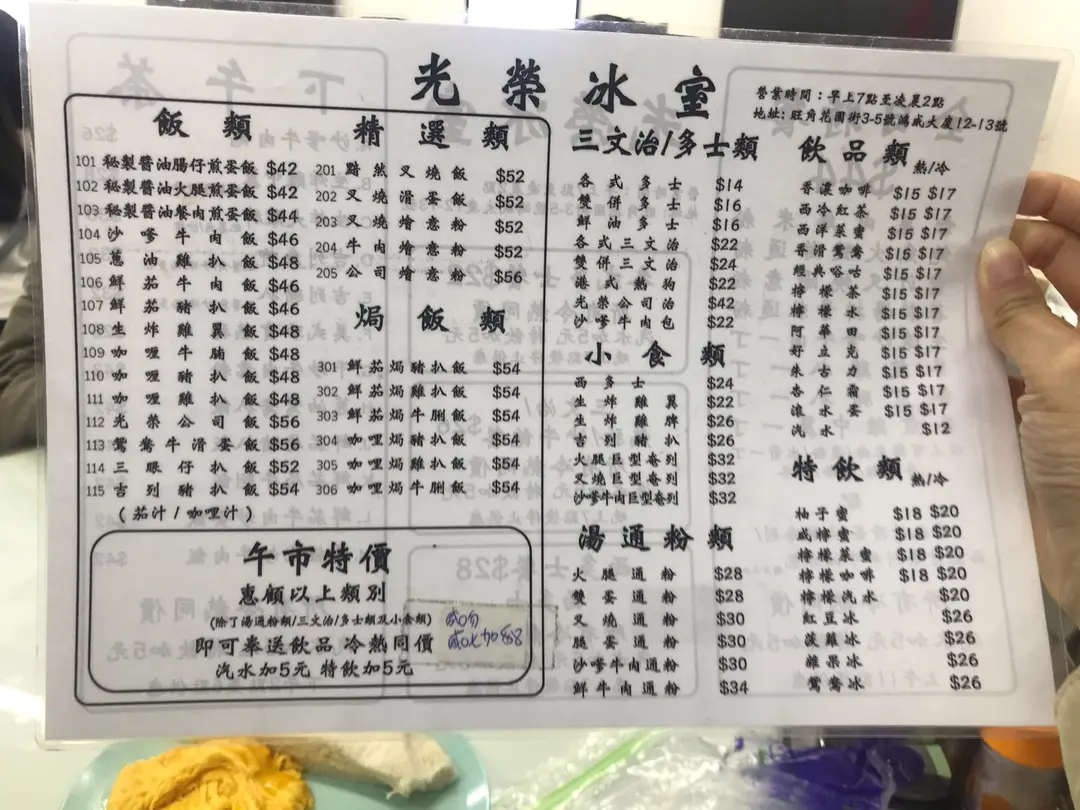 光榮冰室
營業時間：早上7點至凌晨2點
地址: 旺角花園街3-5號鴻威大廈12-13號
飯類
101 秘製醬油腸仔煎蛋飯 $42
102 秘製醬油火腿煎蛋飯 $42
103 秘製醬油餐肉煎蛋飯 $44
104 沙嗲牛肉飯 $46
105 蔥油雞扒飯 $48
106 鮮茄牛肉飯 $46
107 鮮茄豬扒飯 $46
108 生炸雞翼飯 $48
109 咖喱牛腩飯 $48
110 咖喱豬扒飯 $48
111 咖喱雞扒飯 $48
112 光榮公司飯 $56
113 鴛鴦牛滑蛋飯 $56
114 三眼仔扒飯 $52
115 吉列豬扒飯 $54
(茄汁/咖哩汁)
精選類
201 黯然叉燒飯 $52
202 叉燒滑蛋飯 $52
203 叉燒燴意粉 $52
204 牛肉燴意粉 $52
205 公司燴意粉 $56
焗飯類
301 鮮茄焗豬扒飯 $54
302 鮮茄焗雞扒飯 $54
303 鮮茄焗牛脷飯 $54
304 咖哩焗豬扒飯 $54
305 咖哩焗雞扒飯 $54
306 咖哩焗牛脷飯 $54
午市特價
惠顧以上類別
(除了湯通粉類/三文治/多士類及小食類)
即可奉送飲品 冷熱同價
汽水加5元 特飲加5元
三文治/多士類
各式多士 $14
雙併多士 $16
鮮油多士 $16
各式三文治 $22
雙併三文治 $24
港式熱狗 $22
光榮公司治 $42
沙嗲牛肉包 $22
小食類
西多士 $24
生炸雞翼 $22
生炸雞脾 $26
吉列豬扒 $26
火腿巨型奄列 $32
叉燒巨型奄列 $32
沙嗲牛肉巨型奄列 $32
湯通粉類
火腿通粉 $28
雙蛋通粉 $28
叉燒通粉 $30
腿蛋通粉 $30
沙嗲牛肉通粉 $30
鮮牛肉通粉 $34
飲品類
熱/冷
香濃咖啡 $15 $17
西冷紅茶 $15 $17
西洋菜蜜 $15 $17
香滑鴛鴦 $15 $17
經典谷咕 $15 $17
檸檬茶 $15 $17
檸檬水 $15 $17
阿華田 $15 $17
好立克 $15 $17
朱古力 $15 $17
杏仁霜 $15 $17
滾水蛋 $15 $17
汽水 $12
特飲類
熱/冷
柚子蜜 $18 $20
咸檸蜜 $18 $20
檸檬菜蜜 $18 $20
檸檬咖啡 $18 $20
檸檬汽水 $20
紅豆冰 $26
菠蘿冰 $26
雜果冰 $26
鴛鴦冰 $26